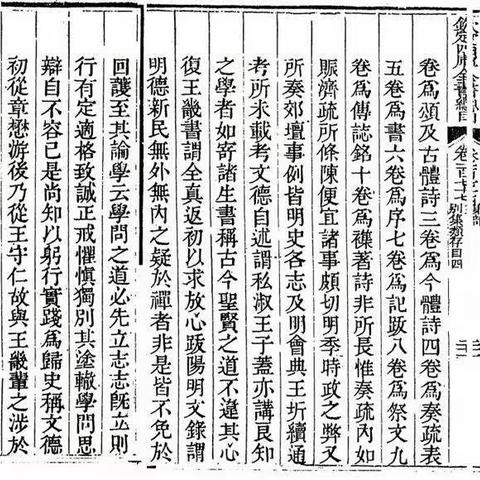 欽定四庫全書總目
卷一百七十七
集部
別集類存目四
卷爲頌及古體詩三卷爲今體詩四卷爲奏疏表
五卷爲書六卷爲序七卷爲記跋八卷爲祭文九
卷爲傳誌銘十卷爲襍著詩非所長惟奏疏內如
賑濟疏所條陳便宜諸事頗切明季時政之弊又
所奏郊壇事例皆明史各志及明會典王圻續通
考所未載考文德自述謂私淑王子蓋亦講良知
之學者如寄諸生書稱古今聖賢之道不違其心
復王畿書謂全真返初以求放心跋陽明文錄謂
明德新民無外無內之疑於禪者非是皆不免於
回護至其諭學云學問之道必先立志志既立則
行有定適格致誠正戒懼愼獨别其塗轍學問思
辯自不容已是尚知以躬行實踐爲歸史稱文德
初從章懋游後乃從王守仁故與王畿輩之涉於